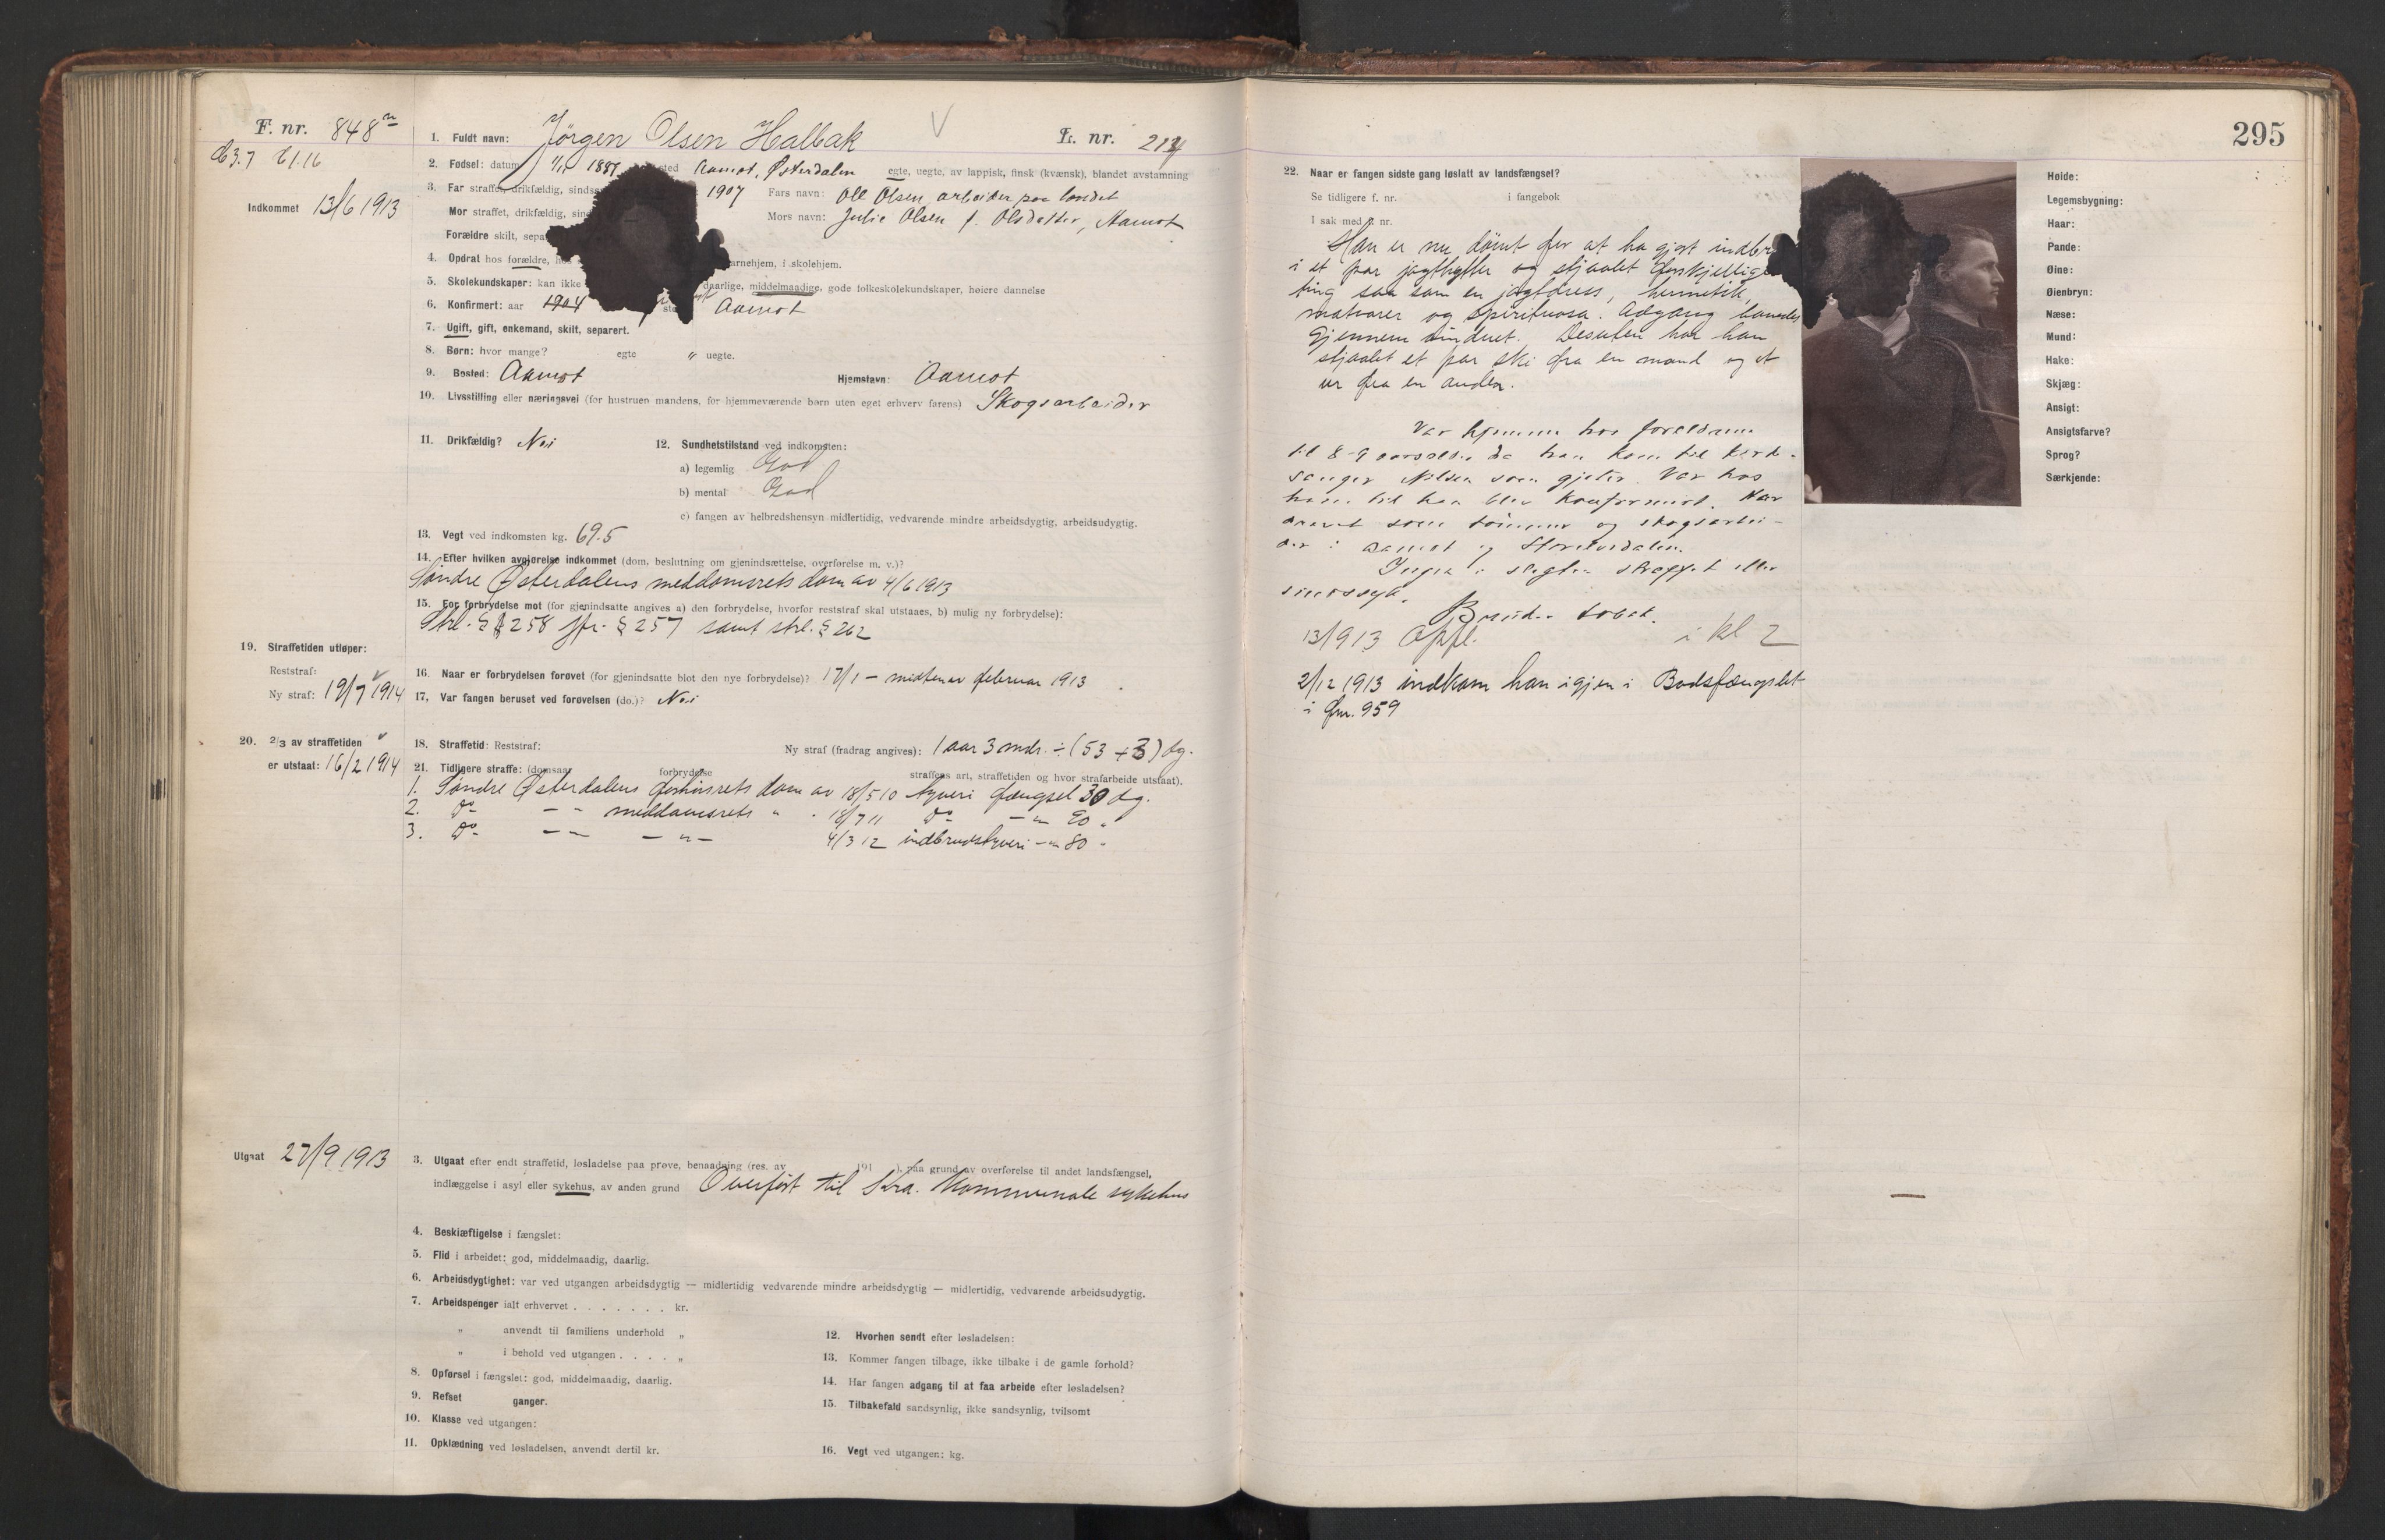 F. nr. 848
Indkommet 13/6 1913
1. Fuldt navn: Jørgen Olsen Halbak
L. nr.
2. Fødsel: datum 1887 Aamot, Østerdalen egte, uegte, av lappisk, finsk (kvænsk), blandet avstamning
3. Far straffet, drikfældig, 1907 Fars navn: Ole Olsen arbeider paa landet
Mor straffet, drikfældig, Mors navn: Julie Olsen f. Olsdatter, Aamot
Forældre skilt,
4. Opdrat hos forældre, i skolehjem.
5. Skolekundskaper: kan ikke daarlige, middelmaadige, gode folkeskolekundskaper, høiere dannelse
6. Konfirmert: aar 1904 Aamot
7. Ugift, gift, enkemand, skilt, separert.
8. Børn: hvor mange? egte " uegte.
9. Bosted: Aamot Hjemstavn: Aamot
10. Livsstilling eller næringsvei (for hustruen mandens, for hjemmeværende børn uten eget erhverv farens) Skogsarbeider
11. Drikfældig? Nei 12. Sundhetstilstand ved indkomsten:
a) legemlig God
b) mental God
c) fangen av helbredshensyn midlertidig, vedvarende mindre arbeidsdygtig, arbeidsudygtig.
13. Vegt ved indkomsten kg. 69.5
14. Efter hvilken avgjørelse indkommet (dom, beslutning om gjenindsættelse, overførelse m. v.)?
Søndre Østerdalens meddomsrets dom av 4/6 1913
15. For forbrydelse mot (for gjenindsatte angives a) den forbrydelse, hvorfor reststraf skal utstaaes, b) mulig ny forbrydelse):
Strl. § 258 jfr. § 257 samt strl. § 262
19. Straffetiden utløper:
Reststraf:
Ny straf: 19/7 1914
16. Naar er forbrydelsen forøvet (for gjenindsatte blot den nye forbrydelse)? 17/1 – midten av februar 1913
17. Var fangen beruset ved forøvelsen (do.)? Nei
20. 2/3 av straffetiden
er utstaat: 16/2 1914
18. Straffetid: Reststraf: Ny straf (fradrag angives): 1 aar 3 mdr. ÷ (53 + 3) dg.
21. Tidligere straffe: (domsaar forbrydelse straffens art, straffetiden og hvor strafarbeide utstaat).
1. Søndre Østerdalens forhørsrets dom av 18/5 10 tyveri fængsel 30 dg.
2. do – – meddomsrets " 18/7 11 do – " 90 "
3. do – – – " – 4/3 12 indbrudstyveri – " 80 "
Utgaat 27/9 1913
3. Utgaat efter endt straffetid, løsladelse paa prøve, benaadning (res. av 191 ), paa grund av overførelse til andet landsfængsel,
indlæggelse i asyl eller sykehus, av anden grund Overført til Kra. Kommunale sykehus
4. Beskjæftigelse i fængslet:
5. Flid i arbeidet: god, middelmaadig, daarlig.
6. Arbeidsdygtighet: var ved utgangen arbeidsdygtig — midlertidig vedvarende mindre arbeidsdygtig — midlertidig, vedvarende arbeidsudygtig.
7. Arbeidspenger ialt erhvervet . . . . . . . kr.
" anvendt til familiens underhold "
" i behold ved utgangen . . . . "
8. Opførsel i fængslet: god, middelmaadig, daarlig.
9. Refset ganger.
10. Klasse ved utgangen:
11. Opklædning ved løsladelsen, anvendt dertil kr.
12. Hvorhen sendt efter løsladelsen:
13. Kommer fangen tilbage, ikke tilbake i de gamle forhold?
14. Har fangen adgang til at faa arbeide efter løsladelsen?
15. Tilbakefald sandsynlig, ikke sandsynlig, tvilsomt
16. Vegt ved utgangen: kg.
295
22. Naar er fangen sidste gang løslatt av landsfængsel?
Se tidligere f. nr. i fangebok
I sak med f. nr.
Han er nu dømt for at ha gjort
i et par jagthytter og stjaalet forskjellige
ting saa som en jagtdress, hermetik,
matvarer og spirituosa. Adgang banedes
gjennem vinduet. Desuten har han
stjaalet et par ski fra en mand og et
ur fra en anden.
Var hjemme hos forældrene
til 8-9 aarsalder da han kom til kirke-
sanger Nilsen som gjeter. Var hos
ham til han blev konfirmert. Har
drevet som tømmer og skogsarbei-
der i Aamot og Storelvdalen.
Ingen i slegten straffet eller
sindssyk.
Bruder tobak.
13/9 13 Oppfl. i kl 2
2/12 1913 indkom han igjen i Bodsfængslet
i fnr. 959
Høide:
Legemsbygning:
Haar:
Pande:
Øine:
Øienbryn:
Næse:
Mund:
Hake:
Skjæg:
Ansigt:
Ansigtsfarve?
Sprog?
Særkjende: